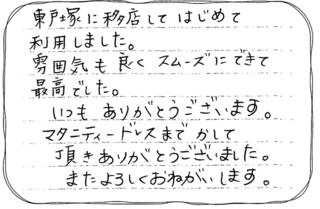 東戸塚に移店してはじめて
利用しました。
雰囲気も良くスムーズにできて
最高でした。
いつもありがとうございます。
マタニティードレスまでかして
頂きありがとうございました。
またよろしくおねがいします。